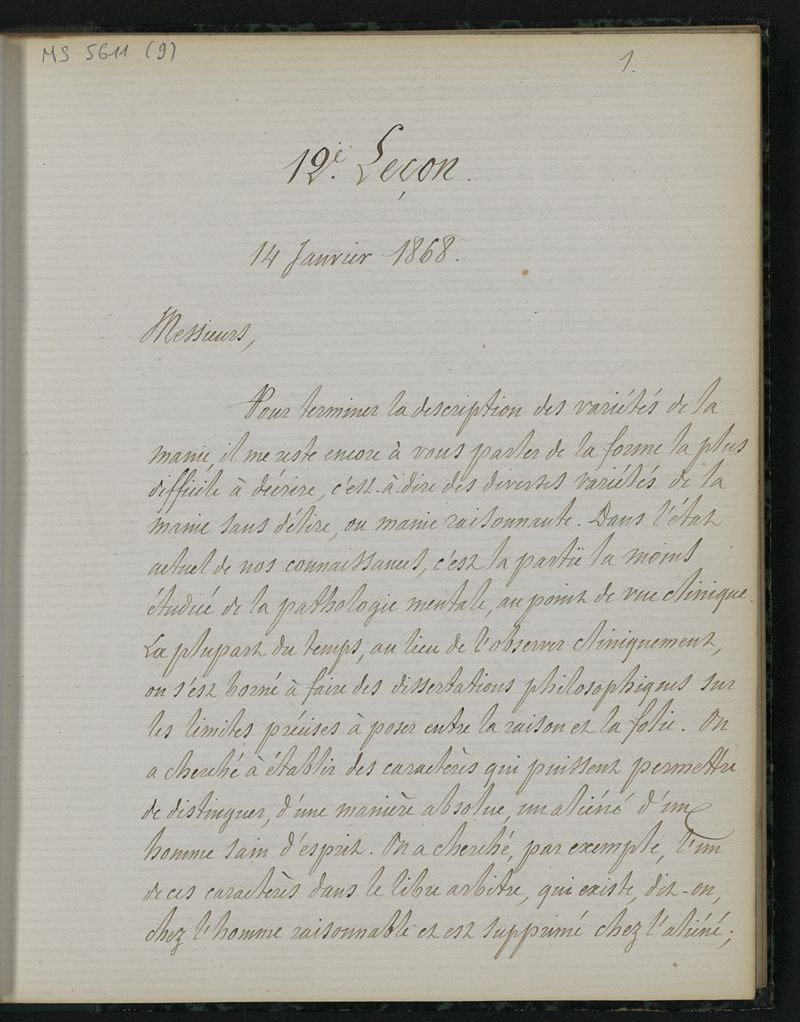 MS 5611 (9)
1.
12.e Leçon.
14 Janvier 1868.
Messieurs,
Pour terminer la description des variétés de la
manie il me reste encore à vous parler de la forme la plus
difficile à décrire, c'est-à-dire des diverses variétés de la
manie sans délire, ou manie raisonnante. Dans l'état
actuel de nos connaissances, c'est la partie la moins
étudiée de la pathologie mentale, au point de vue clinique.
La plupart du temps, au lieu de l'observer cliniquement,
on s'est borné à faire des dissertations philosophiques sur
les limites précises à poser entre la raison et la folie. On
a cherché à établir des caractères qui puissent permettre
de distinguer, d'une manière absolue, un aliéné d'un
homme sain d'esprit. On a cherché, par exemple, l'un
de ces caractères dans le libre arbitre, qui existe, dit-on,
chez l'homme raisonnable et est supprimé chez l'aliéné;